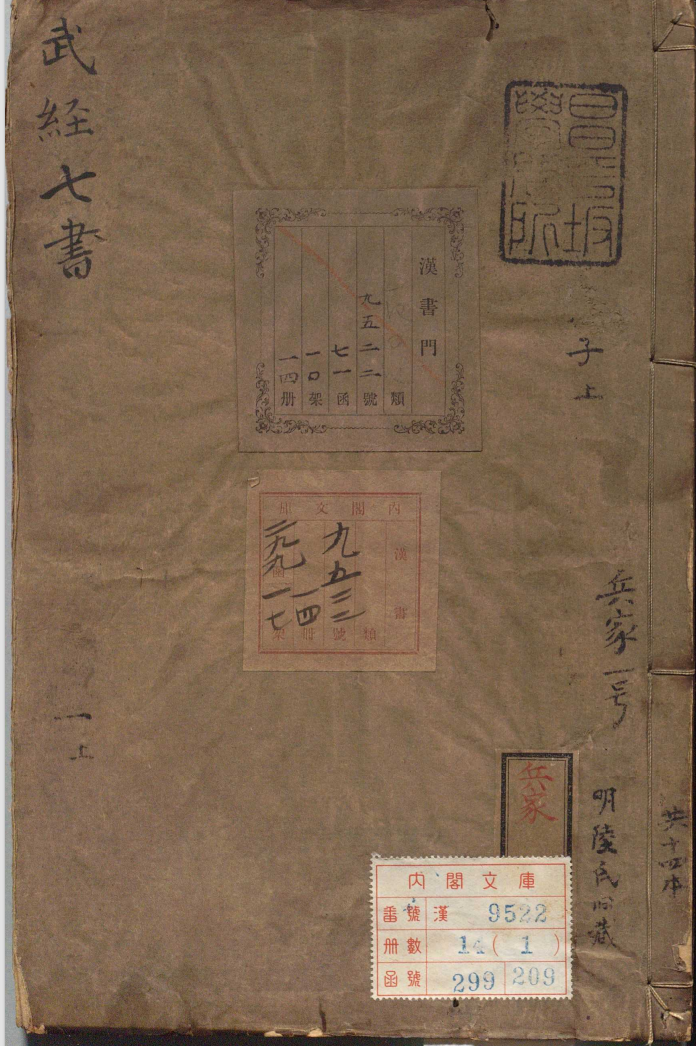 武経七書
一上
昌平坂
學問所
子上
兵家一号
明陸氏旧藏
共十四本
漢書門
類
九五二二號
七一函
一〇架
一四册
内閣文庫
漢書
九五二二
一四
二九九
一七
類號冊
函
架
兵家
内閣文庫
番號 漢 9522
册數 14(1)
函號 299 209